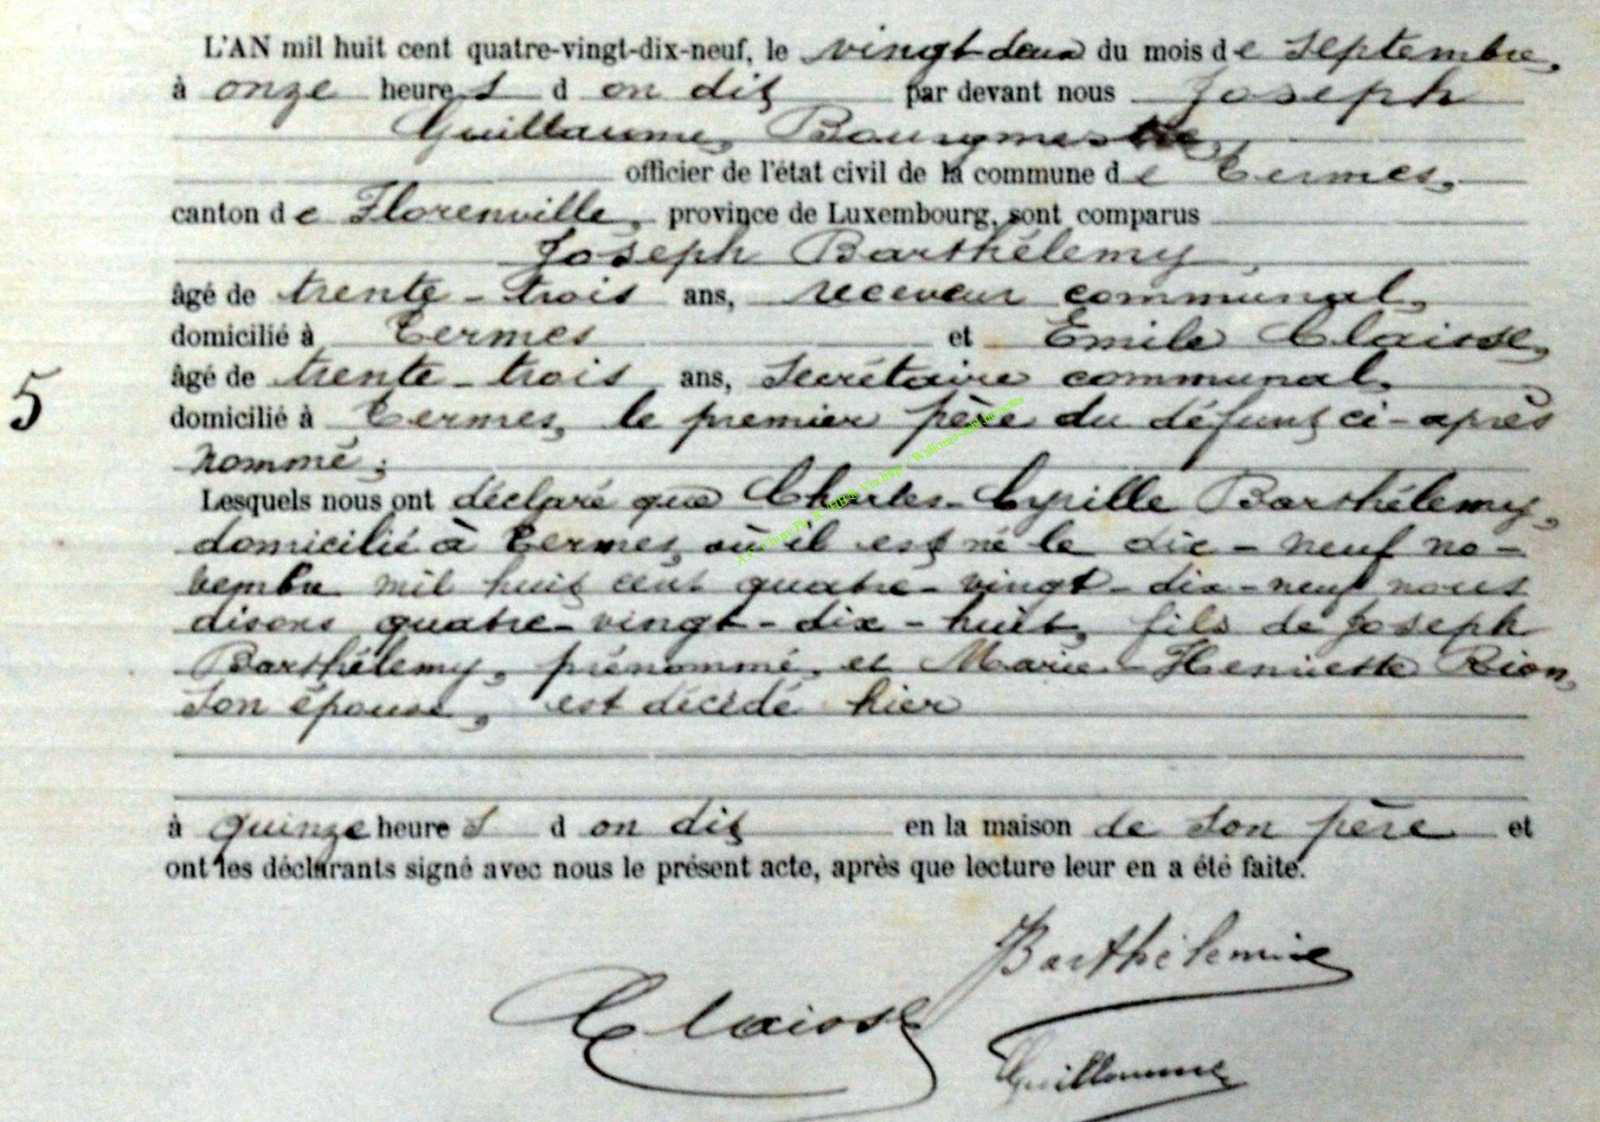 L'AN mil huit cent quatre-vingt-dix-neuf, le vingt-deux du mois de septembre,
à onze heures d on dit par devant nous Joseph
Guillaume, Bourgmestre,
officier de l'état civil de la commune de Termes,
canton de Florenville, province de Luxembourg, sont comparus
Joseph Barthélemy,
âgé de trente-trois ans, receveur communal,
domicilié à Termes et Emile Claisse,
âgé de trente-trois ans, secrétaire communal,
5
domicilié à Termes, le premier père du défunt ci-après
nommé;
Lesquels nous ont déclaré que Charles-Cyrille Barthélemy,
domicilié à Termes, où il est né le dix-neuf no-
vembre mil huit cent quatre-vingt-dix-neuf nous
disons quatre-vingt-dix-huit, fils de Joseph
Barthélemy, prénommé, et Marie-Henriette Rion,
son épouse, est décédé hier
à quinze heures d on dit en la maison de son père et
ont les déclarants signé avec nous le présent acte, après que lecture leur en a été faite.
Barthélemie
Claisse
Guillaume